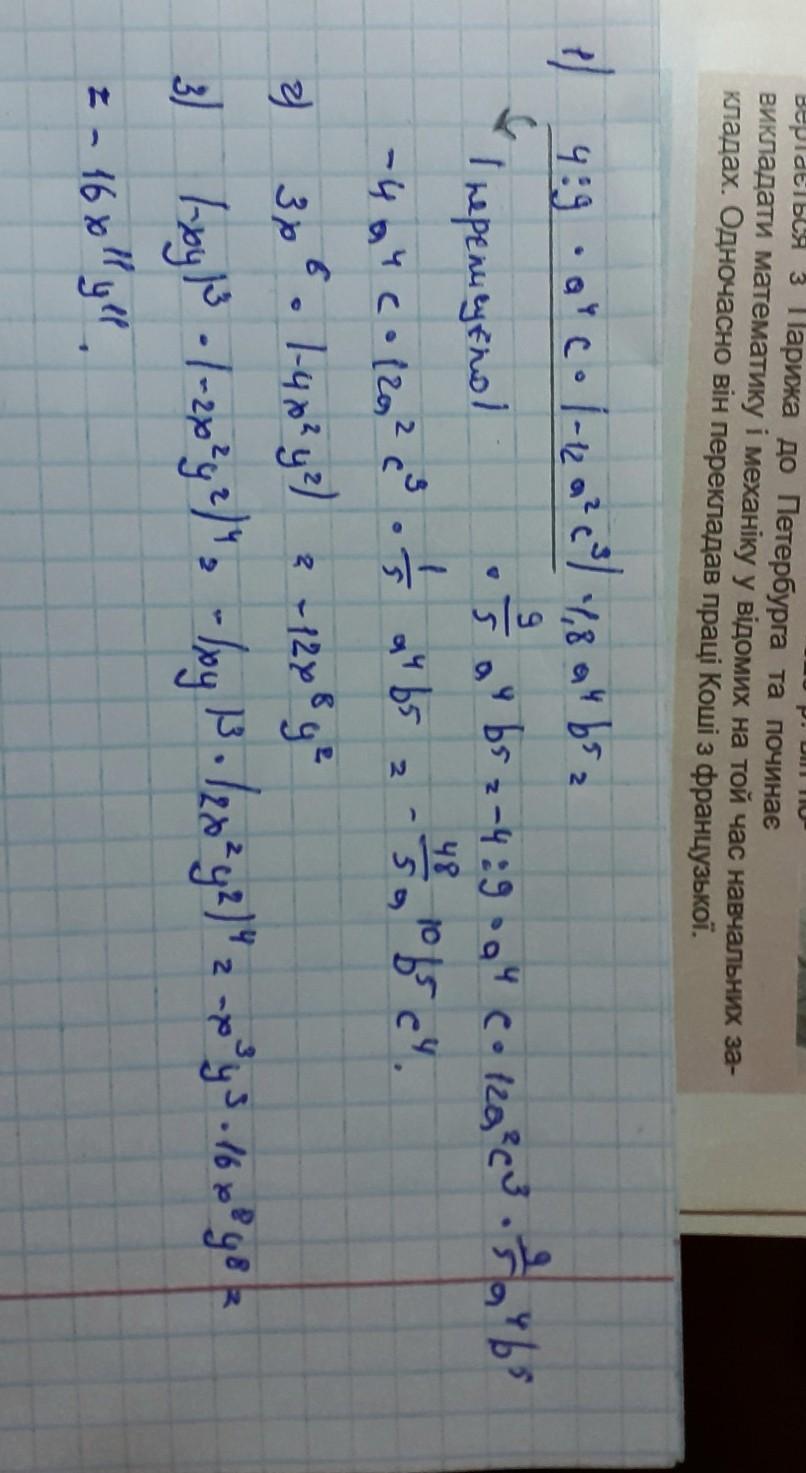 вертається з Парижа до Петербурга та починає
викладати математику і механіку у відомих на той час навчальних за-
кладах. Одночасно він перекладав праці Коші з французької.
1) 4:9 · a⁴c · (-12a²c³) · 1,8a⁴b⁵ =
(переписуємо) · 9/5 a⁴b⁵ = -4:9 · a⁴c · 12a²c³ · 9/5 a⁴b⁵
-4a⁴c · 12a²c³ · 1/5 a⁴b⁵ = - 48/5 a¹⁰b⁵c⁴.
2) 3x⁶ · (-4x²y²) = -12x⁸y²
3) (-xy)³ · (-2x²y²)⁴ = -(xy)³ · (2x²y²)⁴ = -x³y³ · 16x⁸y⁸ =
= -16x¹¹y¹¹.